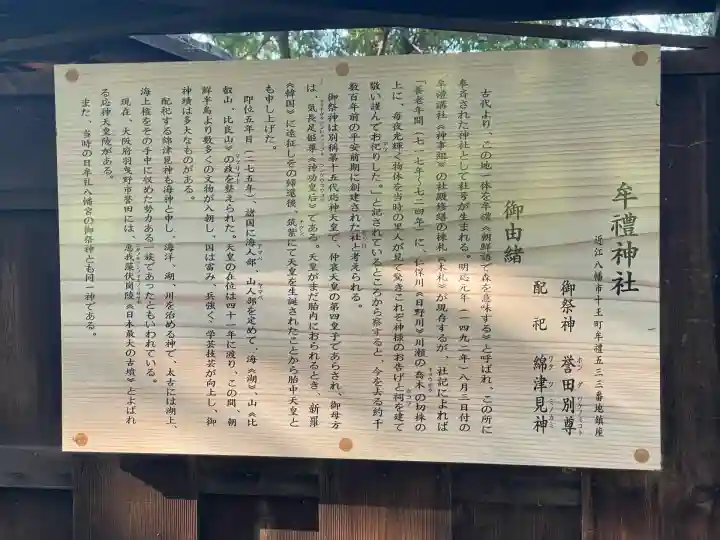 牟禮神社
近江八幡市十王町牟禮五三三番地鎮座
御祭神 誉田別尊
ホンダワケノミコト
配祀 綿津見神
ワタツミノカミ
御由緒
古代より、この地一体を牟禮《朝鮮語で森を意味する》と呼ばれ、この所に
奉斎された神社として社号が生まれる。明応元年（一四九二年）八月三日付の
牟禮講社《神事組》の社殿修繕の棟札《木札》が現存するが、社記によれば
「養老年間（七一七年〜七二四年）に、仁保川《日野川》川瀬の喬木の切株の
上に、毎夜光輝く物体を当時の里人が見て驚きこれぞ神様のお告げと祠を建て
敬い謹んでお祀りした。」と記されているところから察すると、今を去る約千
数百年前の平安前期に創建された社と考えられる。
御祭神は別称第十五代応神天皇で、仲哀天皇の第四皇子であらされ、御母方
は、気長足姫尊《神功皇后》である。天皇がまだ胎内におられるとき、新羅
《韓国》に遠征しその帰還後、筑紫にて天皇を生誕されたことから胎中天皇と
も申し上げた。
即位五年目（二七五年）、諸国に海人部、山人部を定めて、海《湖》、山《比
叡山・比良山》の政を整えられた。天皇の在位は四十一年に渡り、この間、朝
鮮半島より数多くの文物が入朝し、国は富み、兵強く、学芸技芸が向上し、御
神績は多大なものがある。
配祀する綿津見神も海神と申し、海洋、湖、川を治める神で、太古には湖上、
海上権をその手中に収めた勢力ある一族であったともいわれている。
現在、大阪府羽曳野市誉田には、恵我藻伏岡陵《日本最大の古墳》とよばれ
る応神天皇陵がある。
また、当時の日牟社八幡宮の御祭神とも同一神である。